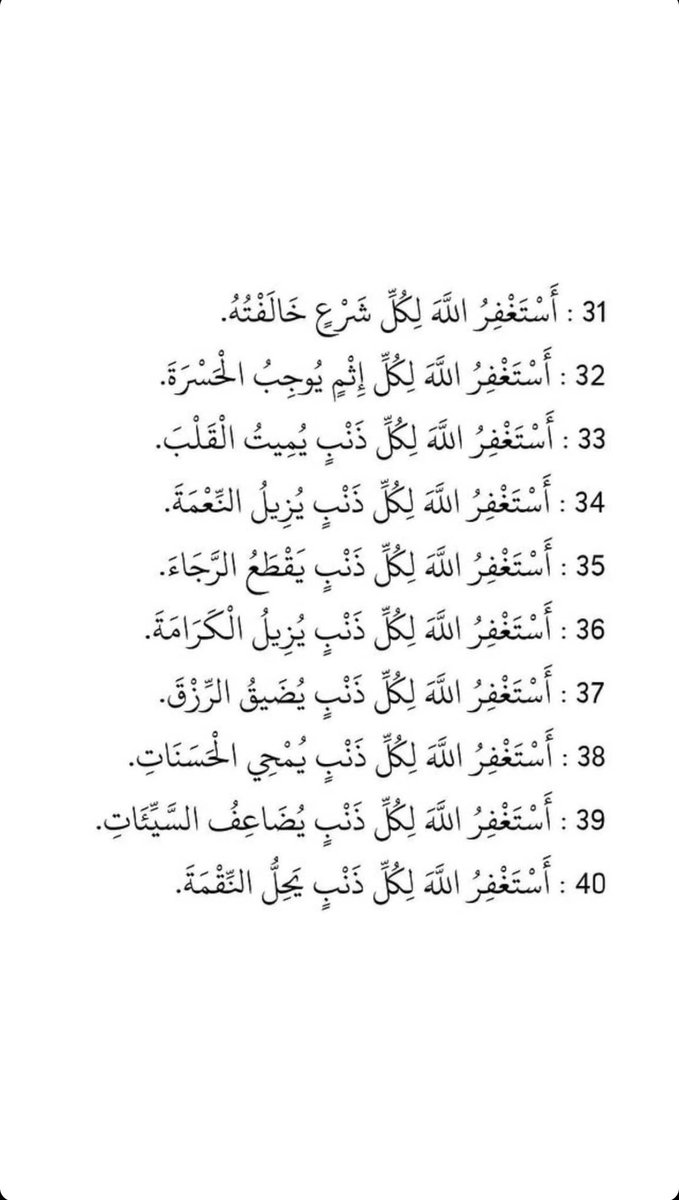 31 : أَسْتَغْفِرُ اللَّهَ لِكُلِّ شَرْعٍ خَالَفْتُهُ.
32 : أَسْتَغْفِرُ اللَّهَ لِكُلِّ إِثْمٍ يُوجِبُ الْحَسْرَةَ.
33 : أَسْتَغْفِرُ اللَّهَ لِكُلِّ ذَنْبٍ يُمِيتُ الْقَلْبَ.
34 : أَسْتَغْفِرُ اللَّهَ لِكُلِّ ذَنْبٍ يُزِيلُ النِّعْمَةَ.
35 : أَسْتَغْفِرُ اللَّهَ لِكُلِّ ذَنْبٍ يَقْطَعُ الرَّجَاءَ.
36 : أَسْتَغْفِرُ اللَّهَ لِكُلِّ ذَنْبٍ يُزِيلُ الْكَرَامَةَ.
37 : أَسْتَغْفِرُ اللَّهَ لِكُلِّ ذَنْبٍ يُضَيقُ الرِّزْقَ.
38 : أَسْتَغْفِرُ اللَّهَ لِكُلِّ ذَنْبٍ يُمْحِي الْحَسَنَاتِ.
39 : أَسْتَغْفِرُ اللَّهَ لِكُلِّ ذَنْبٍ يُضَاعِفُ السَّيِّئَاتِ.
40 : أَسْتَغْفِرُ اللَّهَ لِكُلِّ ذَنْبٍ يَحِلُّ النِّقْمَةَ.